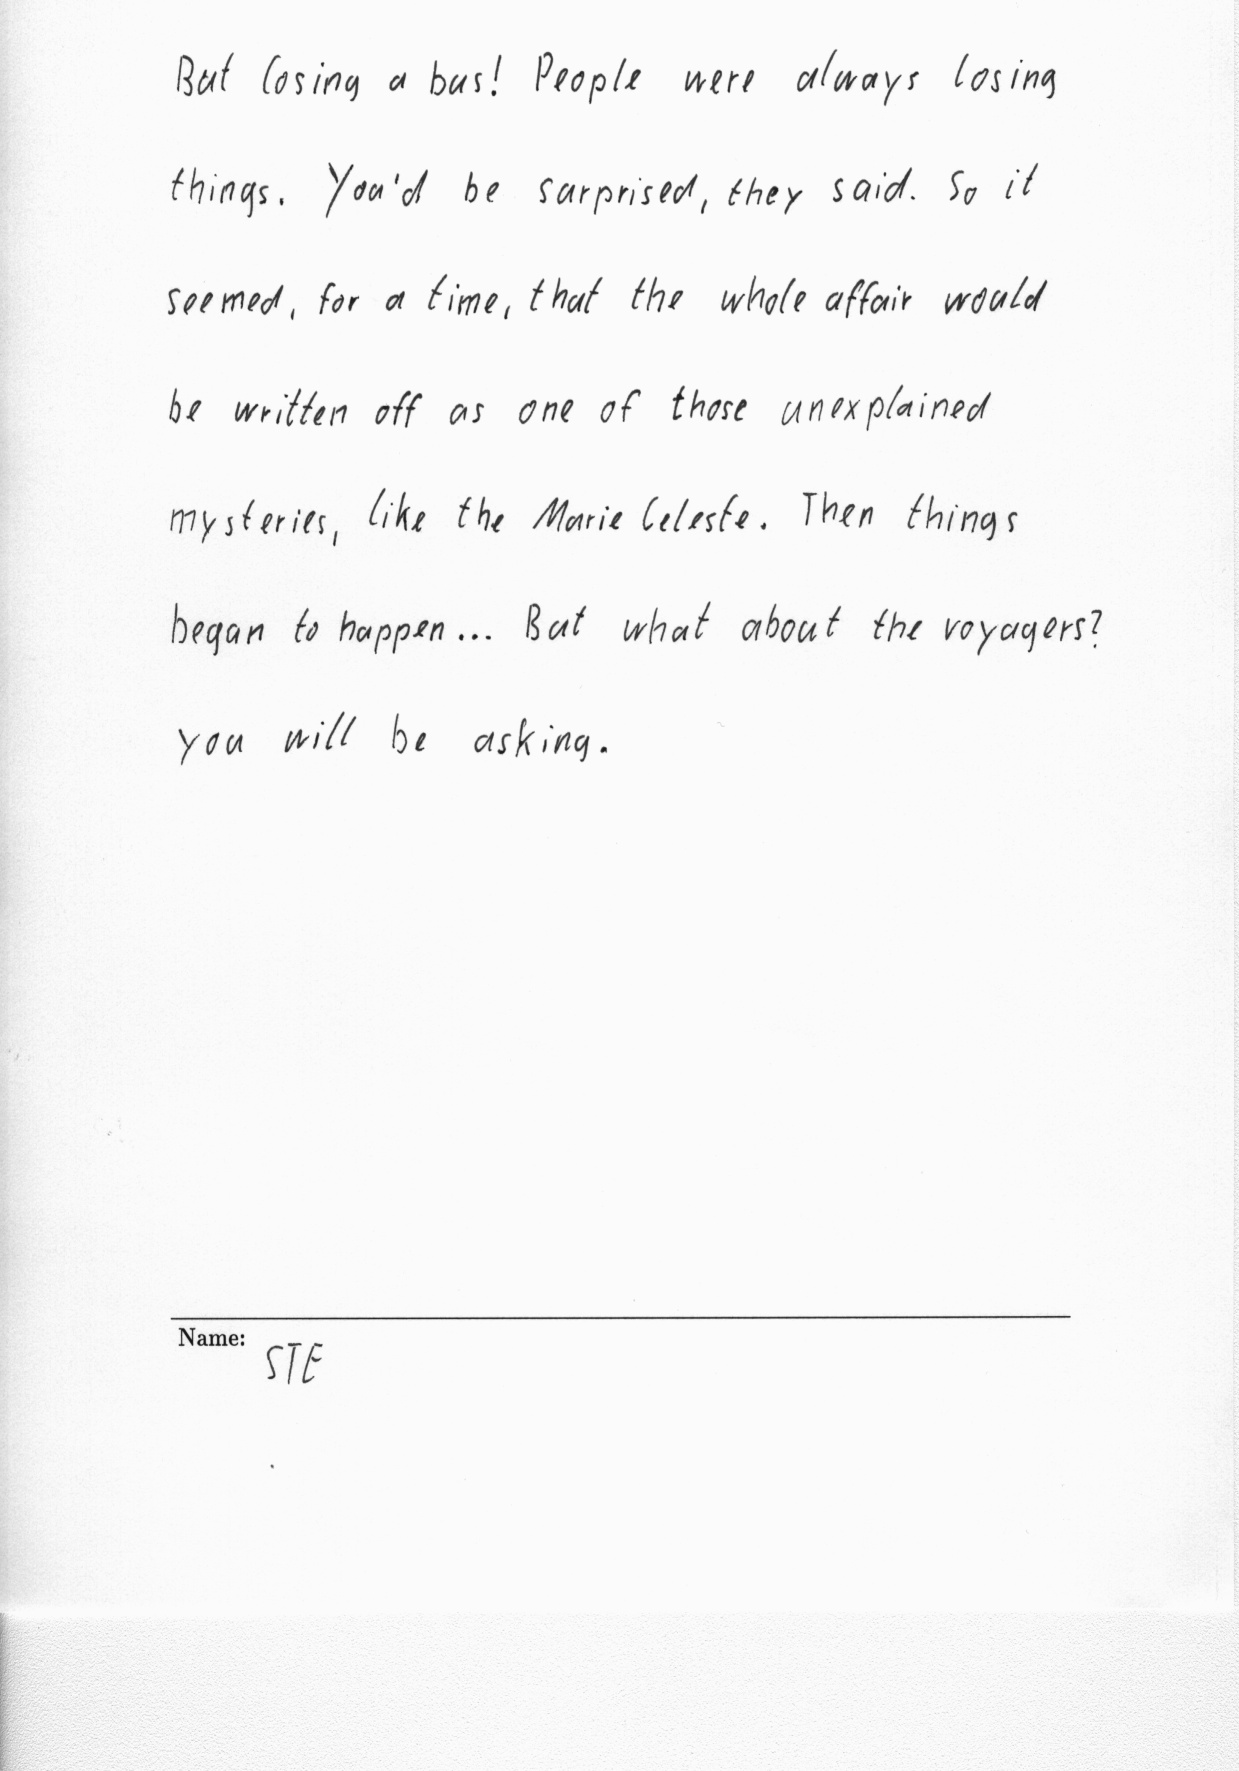 But losing a bus! People were always losing
things. You'd be surprised, they said. So it
seemed, for a time, that the whole affair would
be written off as one of those unexplained
mysteries, like the Marie Celeste. Then things
began to happen... But what about the voyagers?
you will be asking.
Name:
STE